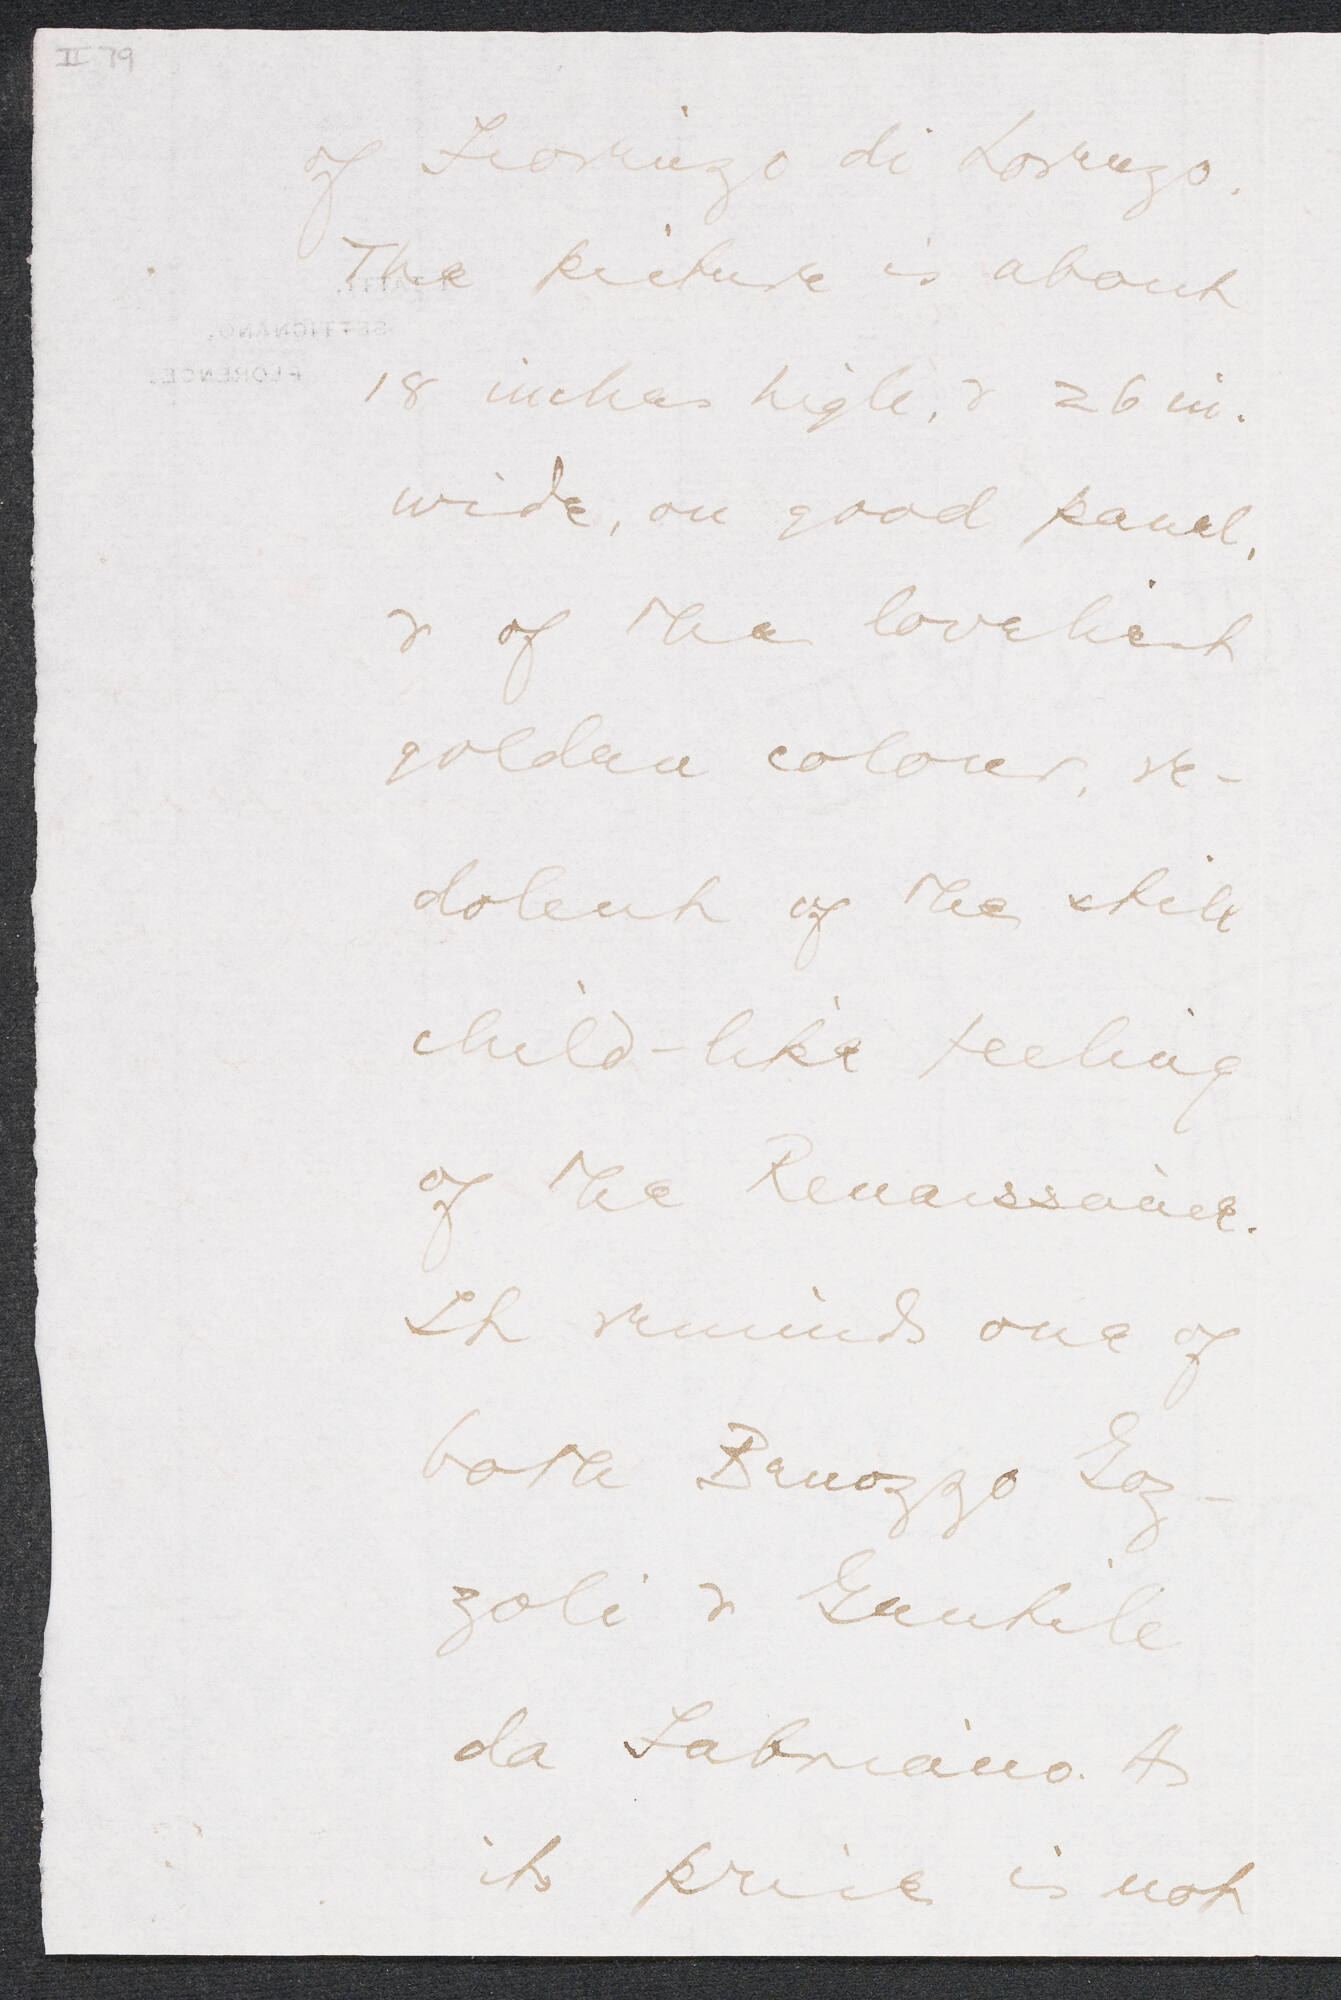 II 79
of Fiorenzo di Lorenzo.
The picture is about
18 inches high, & 26 in.
wide, on good panel,
& of the loveliest
golden colour, re-
dolent of the still
child-like feeling
of the Renaissance.
It reminds one of
both Benozzo Goz-
zoli & Gentile
da Fabriano. As
its price is not
SETTIGNANO,
FLORENCE.